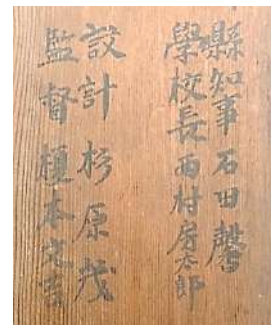 縣知事 石田馨
學校長 西村房太郎
設計 杉原茂
監督 榎本文吉